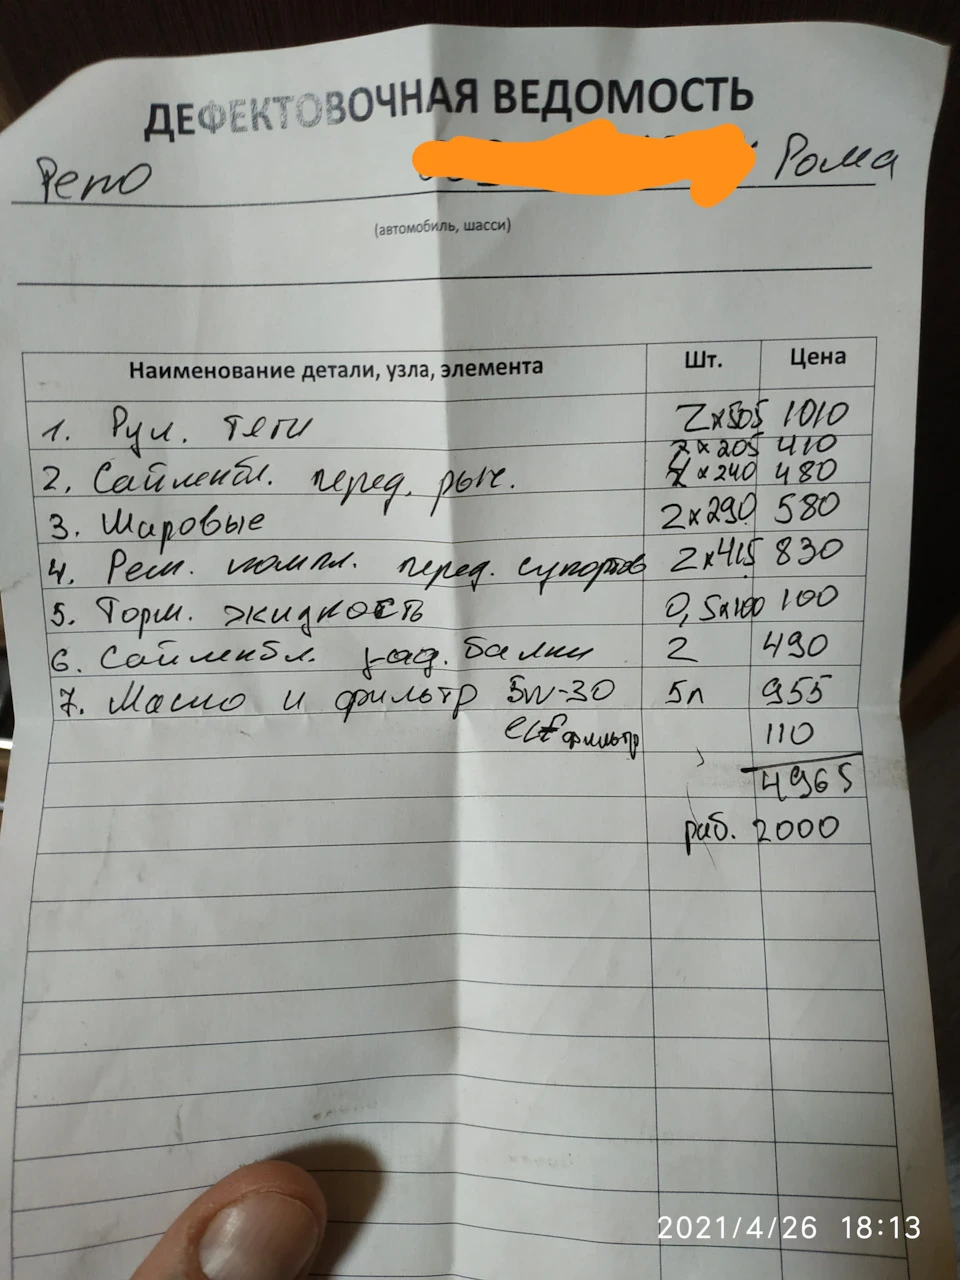 ДЕФЕКТОВОЧНАЯ ВЕДОМОСТЬ
Рено Рома
(автомобиль, шасси)
Наименование детали, узла, элемента Шт. Цена
1. Рул. тяги 2x505 1010
2x205 410
2. Сайлентбл. перед. рыч. 2x240 480
3. Шаровые 2x290 580
4. Рем. компл. перед. супортов 2x415 830
5. Торм. жидкость 0,5x100 100
6. Сайлентбл. зад. балки 2 490
7. Масло и фильтр 5w-30 5л 955
elf фильтр 110
4965
раб. 2000
2021/4/26 18:13